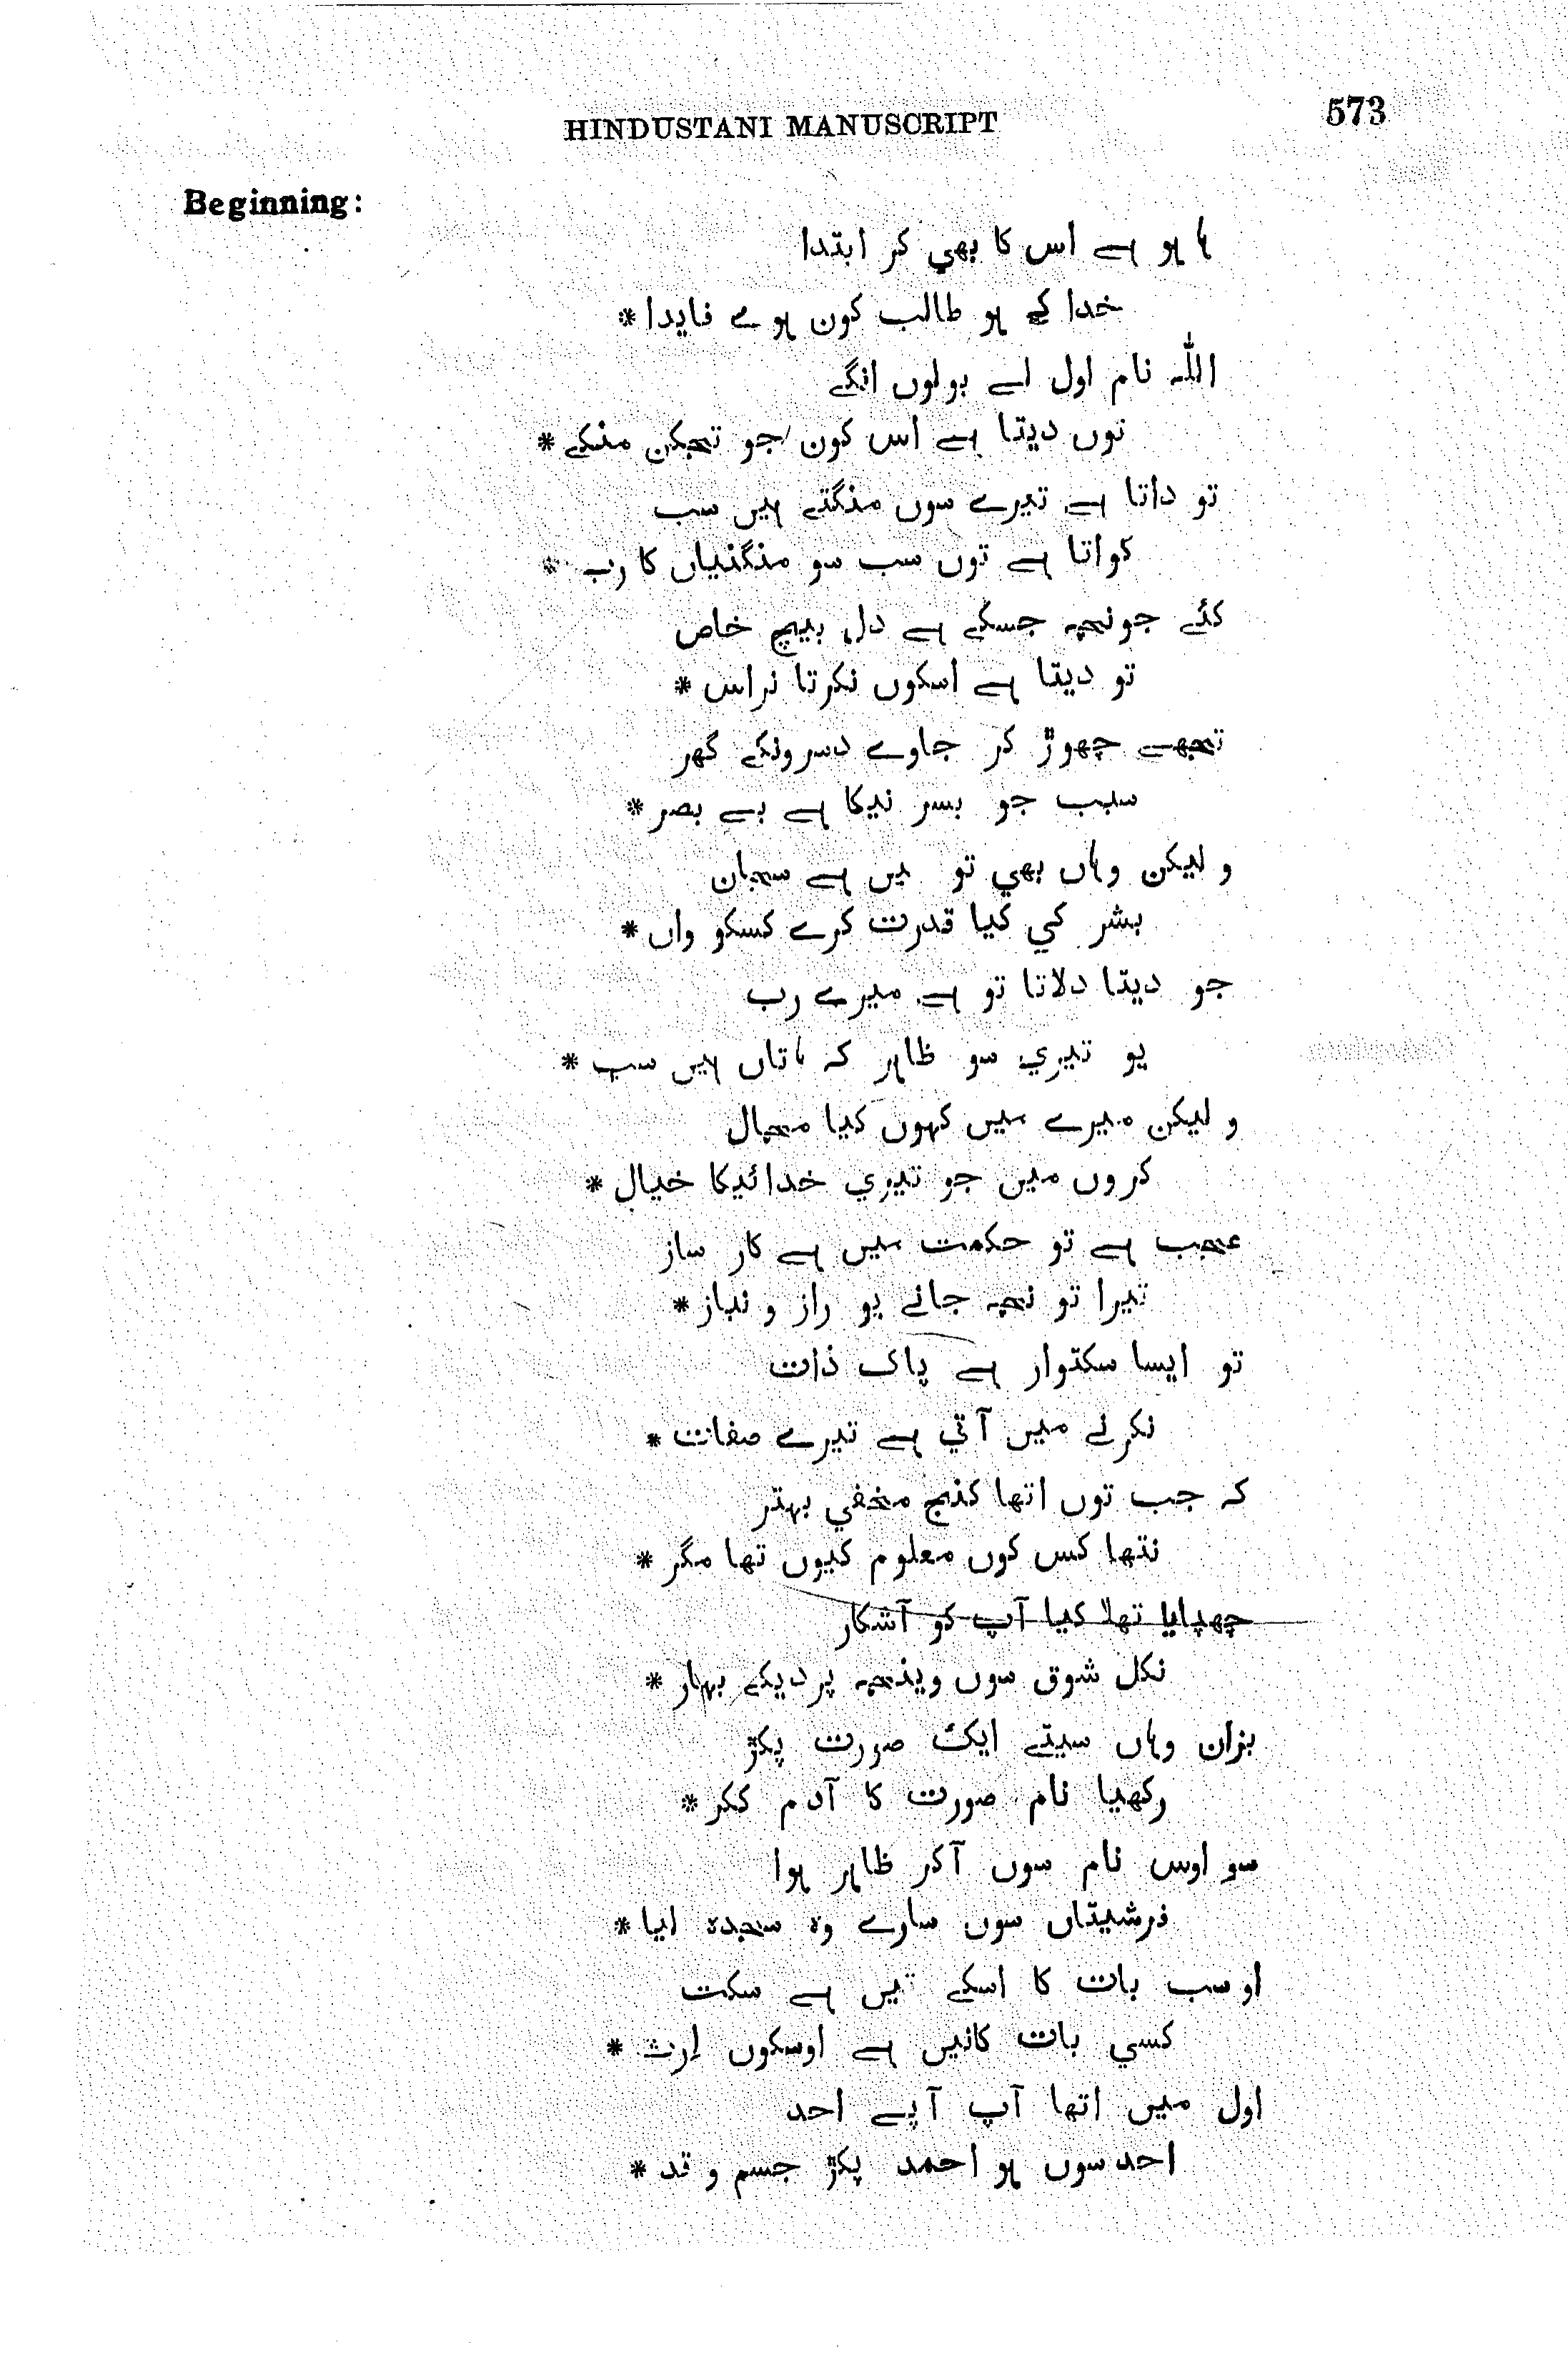 HINDUSTANI MANUSCRIPT 573
Beginning:
ہا ہو ہے اس کا بھي کر ابتدا
خدا کے ہو طالب کون ہوے فایدا *
اللہ نام اول اے بولوں انگے
توں دیتا ہے اس کون جو تجھکن منکے *
تو داتا ہے تیرے سوں منگتے ہیں سب
کواتا ہے توں سب سو منگنیاں کا رب *
کئے جونچہ جسکے ہے دل بیچ خاص
تو دیتا ہے اسکوں نکرتا نراس *
تجھسے چھوڑ کر جاوے دسرونکے گھر
سبب جو بسر نیکا ہے بے بصر *
و لیکن وہاں بھي تو ہیں ہے سبحان
بشر کي کیا قدرت کرے کسکو واں *
جو دیتا دلاتا تو ہے میرے رب
یو تیري سو ظاہر کہ ہاتاں ہیں سب *
و لیکن میرے میں کہوں کیا مجال
کروں میں جو تیري خدائیکا خیال *
عجب ہے تو حکمت میں ہے کار ساز
تیرا تو نچہ جانے یو راز و نیاز *
تو ایسا سکتوار ہے پاک ذات
نکرنے میں آتي ہے تیرے صفات *
کہ جب توں اتھا کنج مخفي بہتر
نتھا کس کوں معلوم کیوں تھا مگر *
چھپایا تھا کیا آپ کو آشکار
نکل شوق سوں وینچہ پر دیکے بہار *
بزاں وہاں سیتے ایک صورت پکڑ
رکھیا نام صورت کا آدم ککر *
سو اوس نام سوں آکر ظاہر ہوا
فرشیتاں سوں سارے وہ سجدہ لیا *
او سب بات کا اسکے تیں ہے سکت
کسي بات کانیں ہے اوسکوں ارث *
اول میں اتھا آپ آپے احد
احد سوں ہو احمد پکڑ جسم و قد *